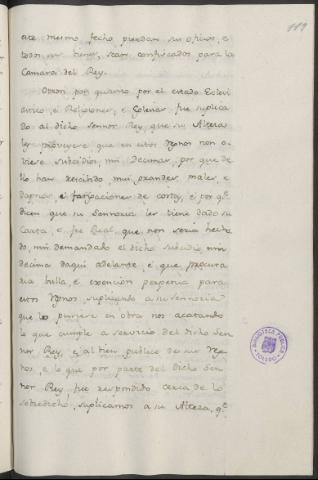 119
ese mesmo fecho pierdan su oficio, e
todos sus bienes, sean confiscados para la
Camara del Rey.
Otrosi por quanto por el estado Eclesi
astico, e Religiones, e Iglesias, fue suplica
do al dicho Sennor Rey, que su Alteza
les proveyese que en estos Regnos non o-
viese subsidios, nin decimas, por que de
llo han recibido mui grandes males, e
dapnos, e fatigaciones de costas, e por q.
dicen que su Sennoria les tiene dada su
Carta, e fee Real, que non seria hecho
do, nin demandado el dicho subsidio, nin
decima daqui adelante, e que procura
ria bulla, e esencion perpetua para
estos Regnos, suplicando a su sennoria
que lo pusiese en obra nos acatando
lo que cumple a servicio del dicho Sen
nor Rey, e al bien publico de sus Reg
nos, e lo que por parte del dicho Sen
nor Rey, fue respondido cerca de lo
sobredicho, suplicamos a su Alteza, q.
BIBLIOTECA PUBLICA
TOLEDO